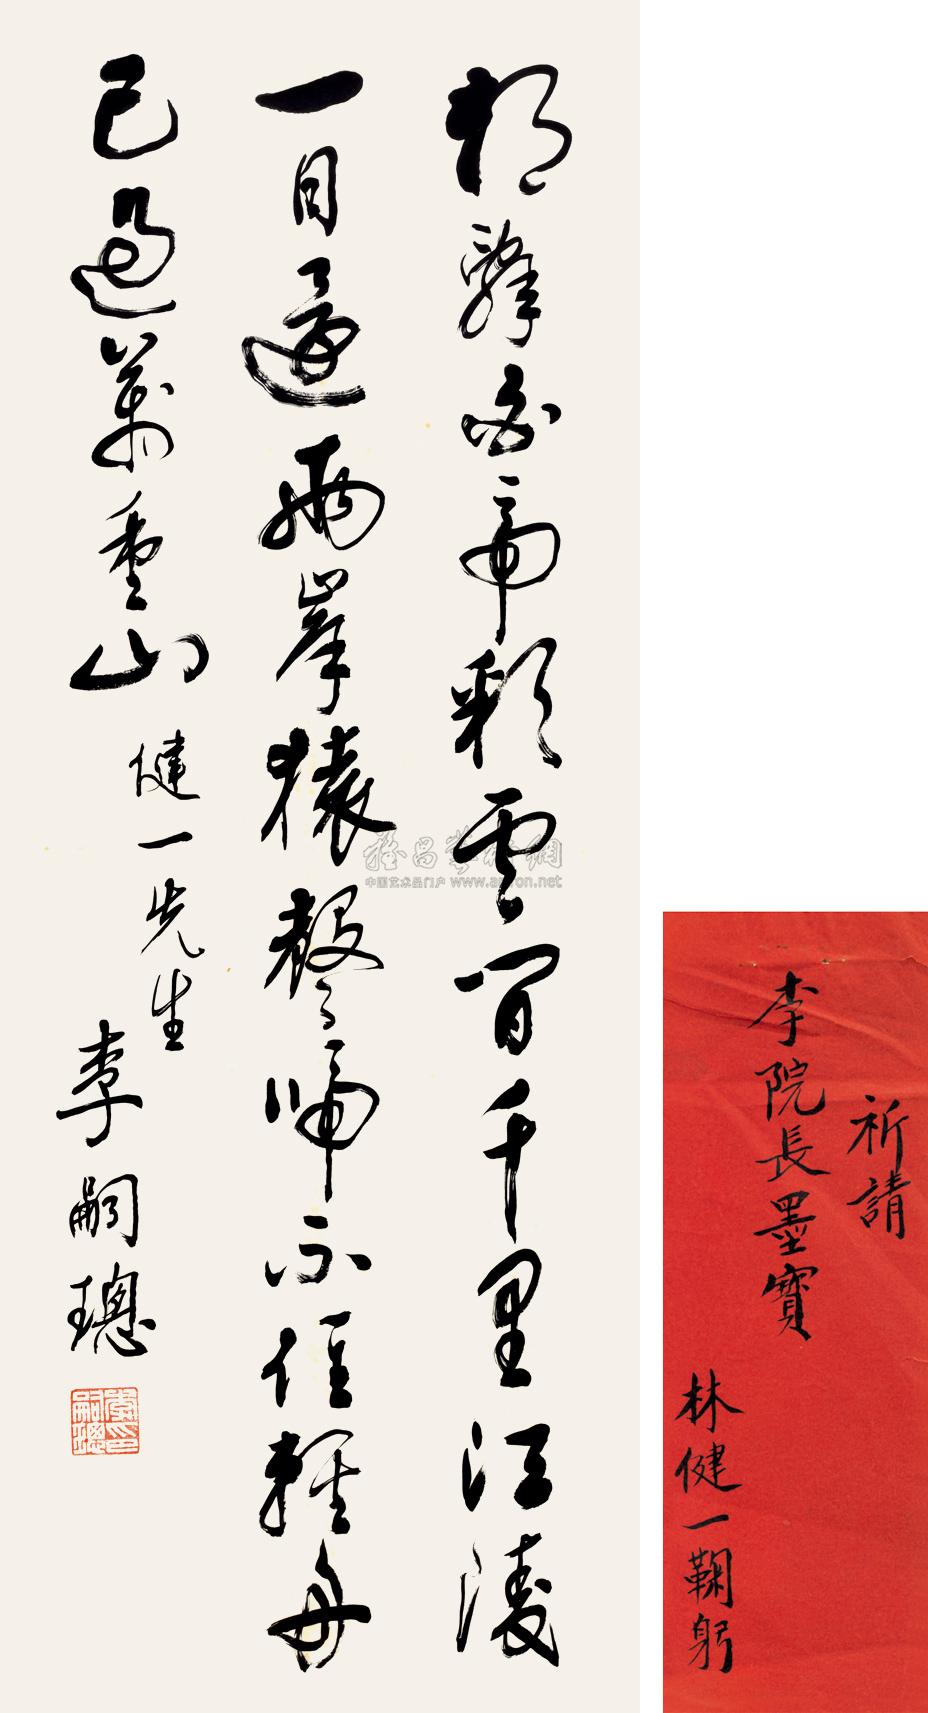 朝辭白帝彩雲間千里江陵
一日還兩岸猿聲啼不住輕舟
已過萬重山
健一先生
李嗣璁
李印嗣璁
祈請
李院長墨寶
林健一鞠躬
雅昌藝術網
中国艺术品门户 www.artron.net